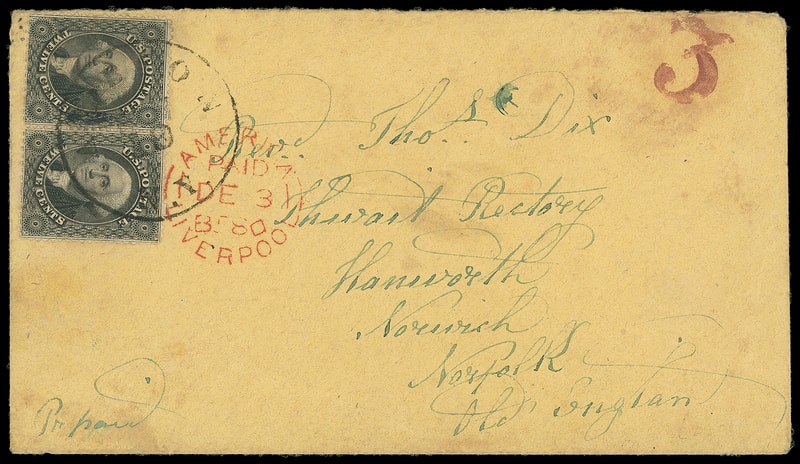 U.S. POSTAGE
TWELVE CENTS
U.S. POSTAGE
TWELVE CENTS
3
AMERICA
PAID
DE 31
60
LIVERPOOL
Revd. Thos. Dix
Thwait Rectory
Hanworth
Norwich
Norfolk
Old England
Prepaid